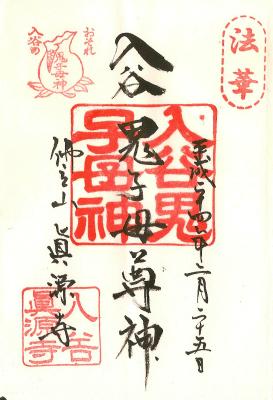 法華
おそれ
入谷の
鬼子母神
入谷
鬼子母尊神
入谷鬼
子母神
平成二十四年二月二十五日
佛立山 眞源寺
入谷
眞源寺